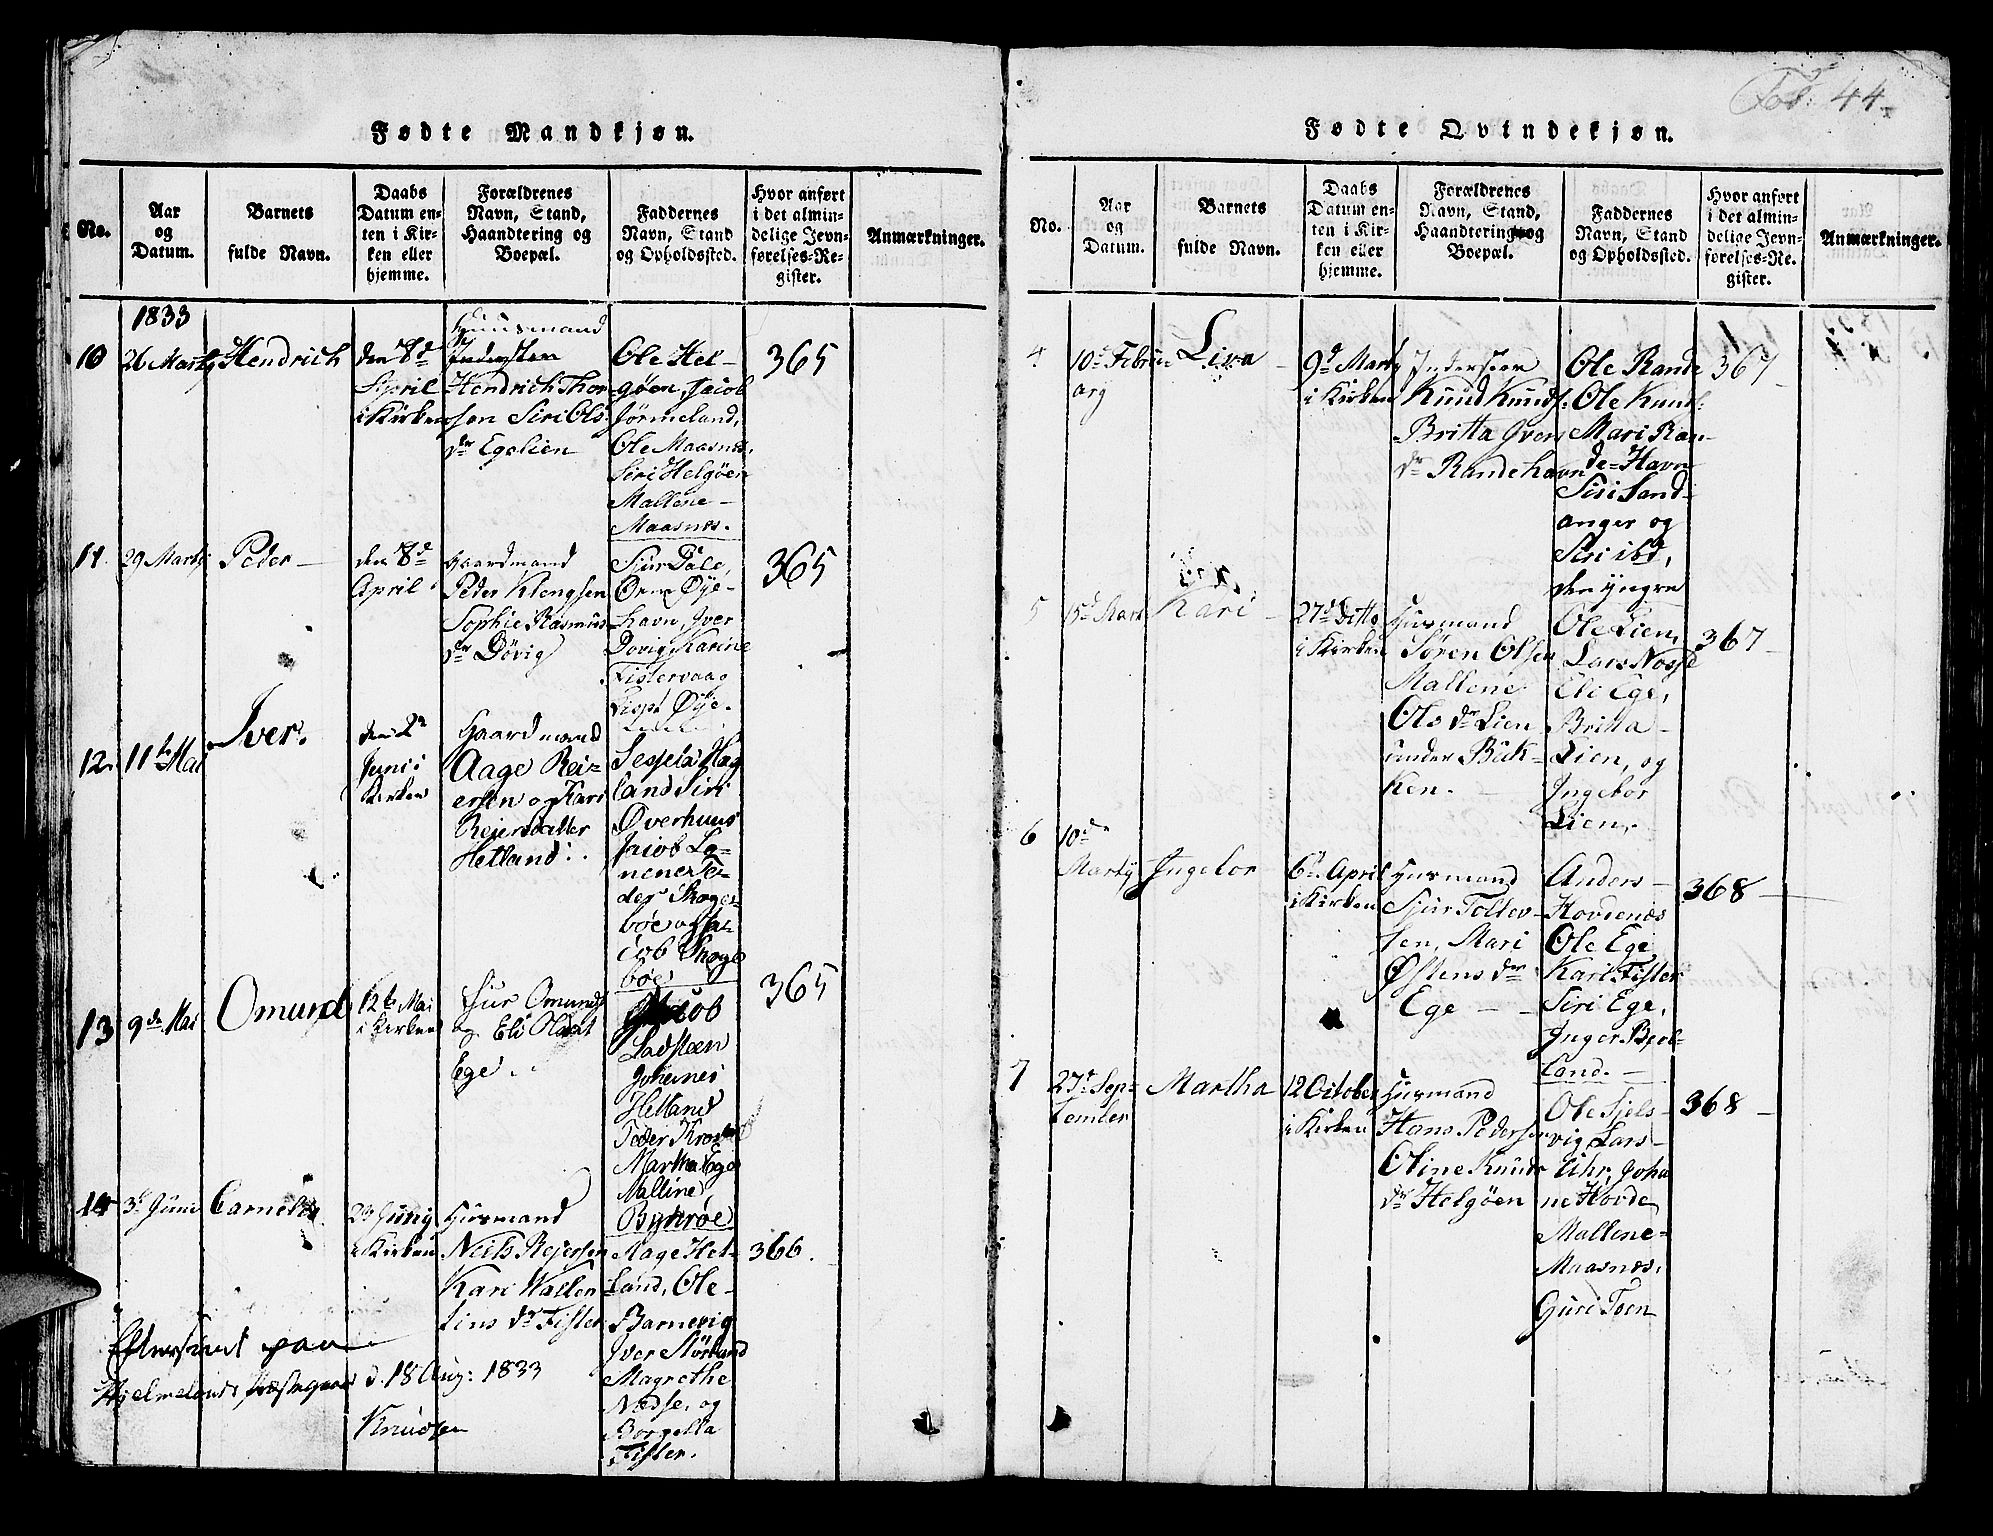 Fol: 44.
Fødte Mandkjøn.
No.
Aar
og
Datum.
Barnets
fulde Navn.
Daabs
Datum en-
ten i Kir-
ken eller
hjemme.
Forældrenes
Navn, Stand,
Haandtering og
Boepæl.
Faddernes
Navn, Stand
og Opholdssted.
Hvor anført
i det almin-
delige Jevn-
førelses-Re-
gister.
Anmærkninger.
1833
10
26 Marty
Hendrich
den 8d
April
i Kirken
Huusmand
Inderster
Hendrich Thor-
sen Siri Ols-
dr Egelien
Ole Hel-
gøen, Jacob
Jørmeland,
Ole Maasnes,
Siri Helgøen
Mallene
Maasnes.
365
11
29 Marty
Peder
den 8d
April
Gaardmand
Peder Klengsen
Sophie Rasmus-
dr Døvig
Siur Dale,
Orm Øye-
havn, Iver
Dovig, Karine
Fistervaag
Øye-
365
12
11te Mai
Iver.
Juni i
Kirken
Gaardmand
Aage Rei-
ersen og Kari
Reiersdatter
Hetland
land Siri
Øverhuus
Jacob
der Skoger-
bøe og Ja-
cob Skoge
bøe
13
9de Mai
Omund
12te Mai
i Kirken
Siur Omunds
og Eli Olsdat
Ege
Jacob
Ladsteen
Johannes
Hetland
Peder
Martha Ege
Malline
Byhrøe
365
14
3d Juni
23 Juny
i Kirken
Husmand
Niels Rejersen
Kari Wallen-
tins dr Fister
Aage Het-
land, Ole
Barnevig
Iver
Magrethe
Nædse, og
Borgella
Fister.
366
Efterseet paa
Hjelmelands Præstegaard d. 18 Aug: 1833
Knudsen
Fødte Qvindekjøn.
No.
Aar
og
Datum.
Barnets
fulde Navn.
Daabs
Datum en-
ten i Kir-
ken eller
hjemme.
Forældrenes
Navn, Stand,
Haandtering og
Boepæl.
Faddernes
Navn, Stand
og Opholdssted.
Hvor anført
i det almin-
delige Jevn-
førelses-Re-
gister.
Anmærkninger.
4
10d Febru
ary
Liva
9d Marty
i Kirken
Inderster
Knud Knuds:
Britta Ivers
dr Randehavn
Ole Rande
Ole Knud-
Mari Ran-
de-Havn
Siri Sand-
anger og
Siri ibd,
den yngre
367
5
15d Mart
Kari
27d ditto
i Kirken
Husmand
Søren Olsen
Mallene
Ols dr Lien
under Buk-
ken.
Ole Lien,
Lars
Eli Ege,
Britta
Lien, og
Ingebor
Lien.
367
6
10d
Marty
Ingebor
6d April
i Kirken
Husmand
Sjur Tollev-
sen, Mari
Østens dr
Ege
Anders
Hovdenæs
Ole Ege
Kari Fister
Siri Ege,
Inger
land.
368
7
27d Sep-
tember
Martha
12 October
i Kirken
Husmand
Hans Pedersen
Oline Knuds
dr Helgøen
Ole Fjels-
vig Lars
Uhr, Joha
ne Hovde
Mallene
Maasnes,
Guri Toen
368